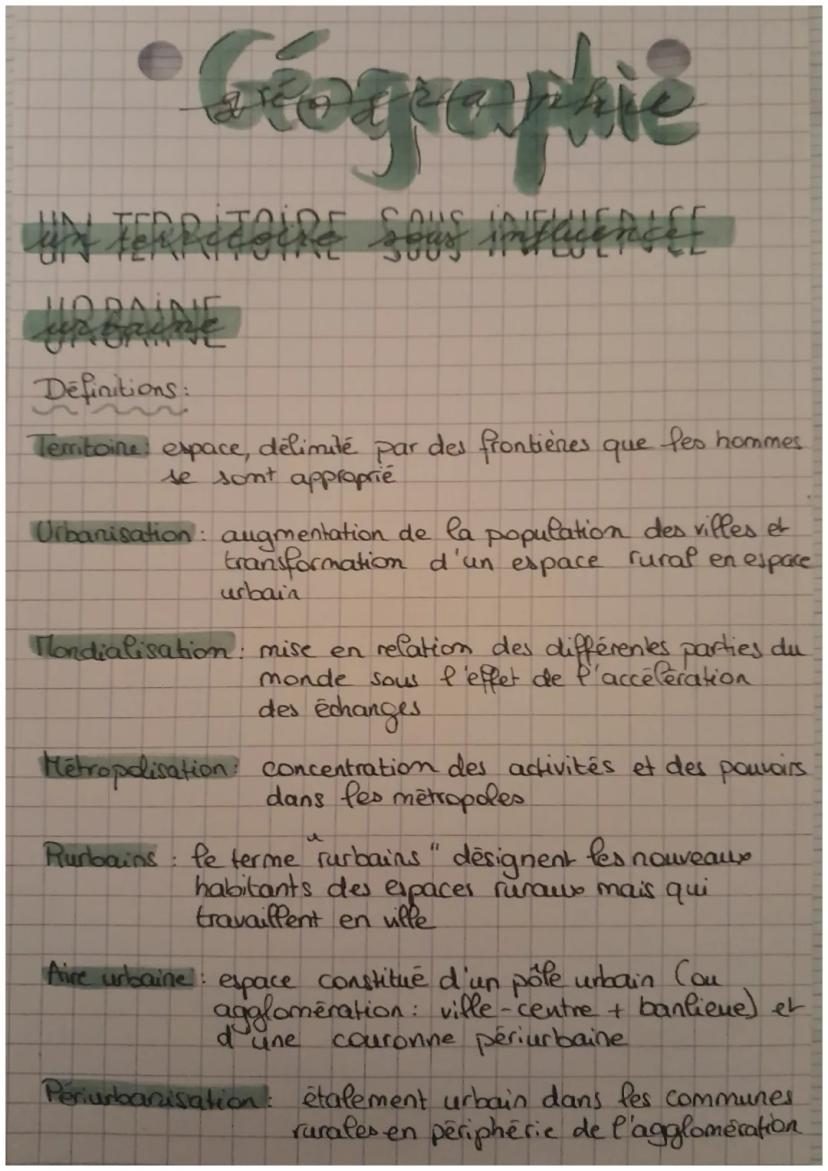 Géographie
UN TERRITOIRE SOUS INFLUENCE
URBAINE
Définitions:
Territoire: espace, délimité par des frontières que les hommes
se sont approprié
Urbanisation: augmentation de la population des villes et
transformation d'un espace rural en espace
urbain
Mondialisation: mise en relation des différentes parties du
monde sous l'effet de l'accélération
des échanges
Métropolisation: concentration des activités et des pouvoirs
dans les métropoles
Rurbains: le terme "rurbains" désignent les nouveaux
habitants des espaces ruraux mais qui
travaillent en ville
Aire urbaine: espace constitué d'un pôle urbain (ou
agglomération: ville-centre + banlieue) et
d'une couronne périurbaine
Périurbanisation: étalement urbain dans les communes
rurales en périphérie de l'agglomération